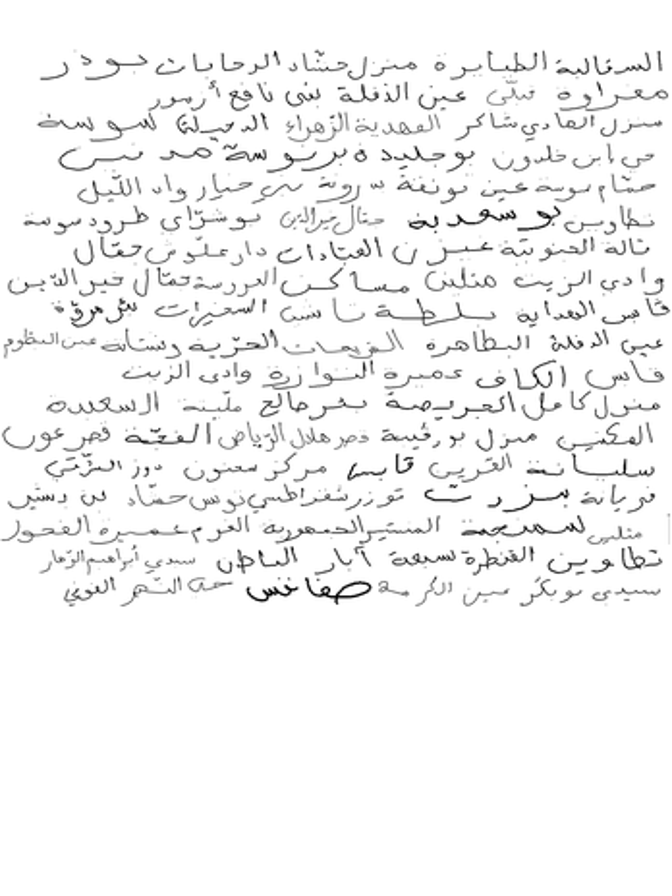 السرغالبة الطبابرة منزل حشاد الرحابات بوذر
مغراوة قبلّي عين الدفلة بني نافع أرمور
منزل الهادي شاكر المهدية الزهراء الدخيلة سوسة
حي ابن خلدون بوجليدة بربوسة مد نين
حمّام سوسة عين بونفة حيار واد اللّيل
تطاوين بو سعدية حفّال خير الدين بوشرّاي طرود سوسة
تالة الجنوبيّة العبّادات دار علّوش حفّال
وادي الزيت متلين مساكن العروسة حفّال خير الدّين
قابس الهداية بلطة السخيرات
عين الدفلة البطاهرة الفريحات الحرّية وشتاتة عين المظلوم
فاس الكاف عميرة النوازرة وادي الزيت
منزل كامل الجريصة بئر صالح مليتة السعيدة
المكنين منزل بورقيبة قصر هلال الرّياض الفجّة قصر عون
سليانة القرين قابس مركز سعنون دوز
فريانة بنزرت توزر تونس حشّاد
متلين لسمنجة المنستير الجمهورية عميرة الفحول
تطاوين القنطرة لسبعة آبار الباطن سيدي أبراهيم الزهّار
سيدي بوبكر عين الكرمة صفاقس